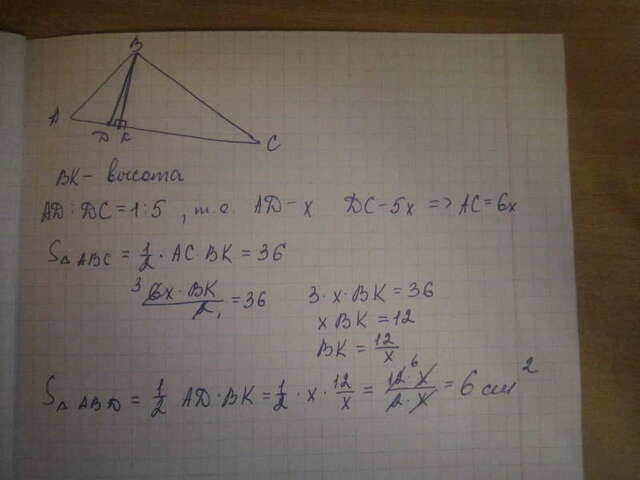 B
A
D K
C
BK - высота
AD : DC = 1 : 5 , т.е. AD - x DC - 5x => AC = 6x
S△ABC = 1/2 · AC · BK = 36
3 6x · BK / 2 1 = 36 3 · x · BK = 36
x BK = 12
BK = 12/x
S△ABD = 1/2 AD · BK = 1/2 · x · 12/x = 12 6 · x / 2 · x = 6 см²